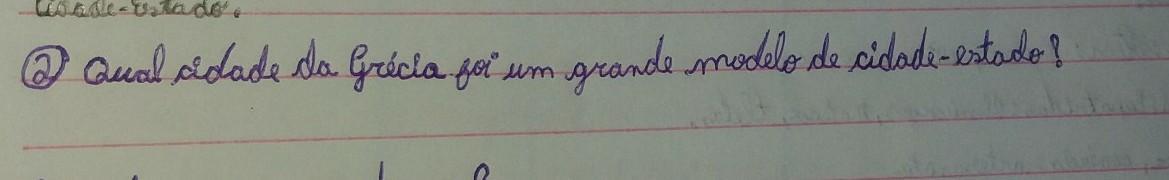 cidade-estado.
② Qual cidade da Grécia foi um grande modelo de cidade-estado?